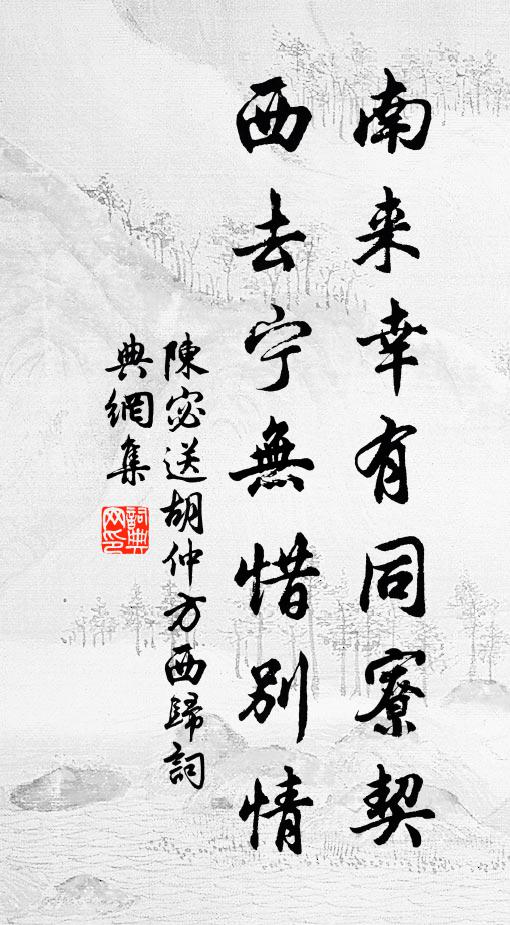 南来幸有同寮契
西去宁無惜别情
陳宓送胡仲方西歸詞
典網集
詞典
网印